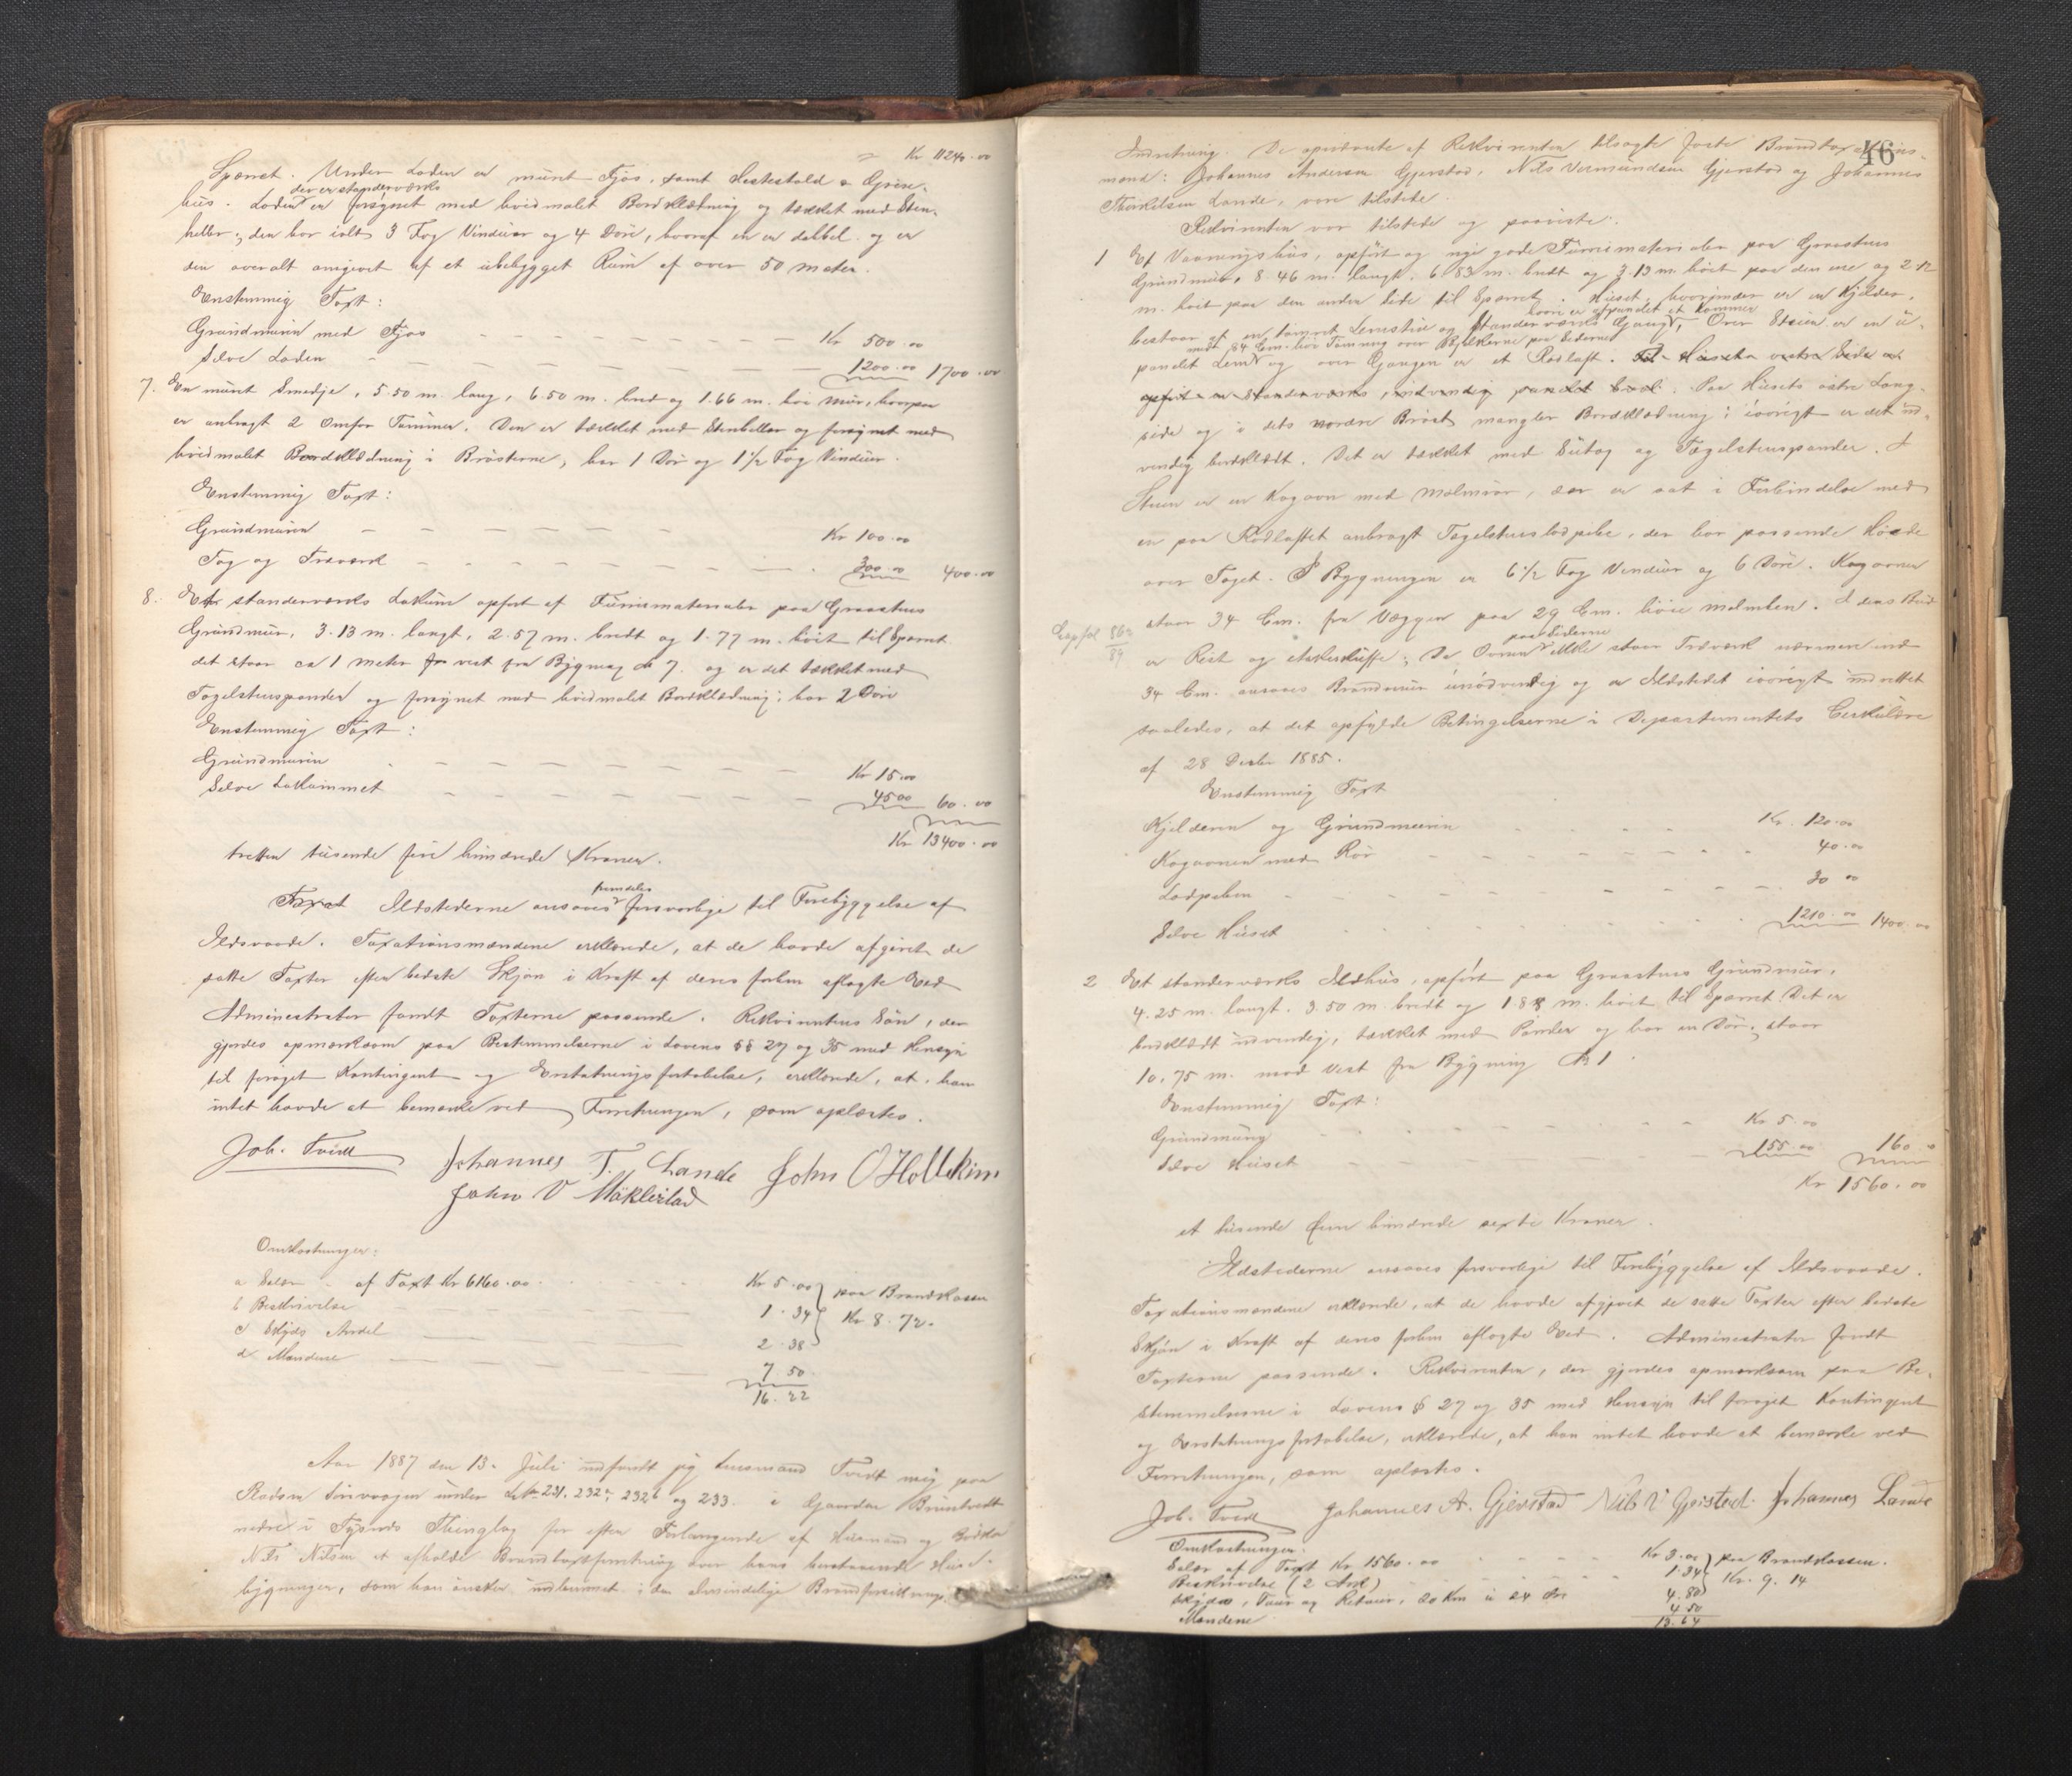 Kr 11240.00
Sperret. Under Loden er muret Fjøs, samt Hestestald & Grise-
der er standerværks
hus. Loden er forsynet med hvidmalet Bordklædning og tækket med Sten-
heller; den har ialt 3 Fag Vinduer og 4 Døre, hvoraf en er dobbel og er
den overalt omgivet af et ubebygget Rum af over 50 meter.
Enstemmig Taxt:
Grundmuren med Fjøs Kr 500.00
Selve Loden 1200.00 1700.00
7. En muret Smedje, 5.50 m. lang, 6.50 m. bred og 1.66 m. høi Mur, hvorpaa
er anbragt 2 Omfar Tømmer. Den er tækket med Stenheller og forsynet med
hvidmalet Bordklædning i Brøsterne, har 1 Dør og 1 1/2 Fag Vinduer.
Enstemmig Taxt:
Grundmuren Kr 100.00
Tag og Træværk 300.00 400.00
8. Et standerværks Lokum opført af Furrumaterialer paa Graastens
Grundmur, 3.13 m. langt, 2.57 m. bredt og 1.77 m. høit til Sperret
det staar ca 1 meter fra vest fra Bygning № 7. og er det tækket med
Tagelstenspander og forsynet med hvidmalet Bordklædning; har 2 Døre
Enstemmig Taxt:
Grundmuren Kr 15.00
Selve Lokummet 45.00 60.00
Kr 13400.00
tretten tusende fire hundrede Kroner.
fremdeles
Taxat Ildstederne ansaaes forsvarlige til Forebyggelse af
Ildsvaade. Taxationsmændene erklærede, at de havde afgivet de
satte Taxter efter bedste Skjøn i Kraft af deres forhen aflagte Ed
Administrator fandt Taxterne passende. Rekvirentens Søn, der
gjordes opmærksom paa Bestemmelserne i Lovens §§ 27 og 35 med Hensyn
til forøget Kontingent og Erstatningsfortabelse, erklærede, at han
intet havde at bemærke ved Forretningen, som oplæstes.
Joh. Tvedt Johannes T. Lande John O Holdhim
John V Møklestad
Omkostninger:
a Salær af Taxt Kr 6160.00 Kr 5.00 paa Brandkassen
b Beskrivelse 1.34 Kr 8.72.
c Skyds Andel 2.38
d Mændene 7.50
16.22
Aar 1887 den 13. Juli indfandt jeg Lensmand Tvedt mig paa
Pladsen Sørvaagen under L № 231. 232a, 232b og 233. i Gaarden Bruntvedt
nedre i Tysnes Thinglag for efter Forlangende af Husmand og Bødker
Nils Nilsen at afholde Brandtaxtforretning over hans bestaaende Hus-
bygninger, som han ønsker indlemmet i den almindelige Brandforsikrings
46
Indretning. De operdante af Rekvirenten tilsagte faste Brandtaxations-
mænd: Johannes Andersen Gjerstad, Nils Vermundsen Gjerstad og Johannes
Thorkelsen Lande, vare tilstede.
Rekvirenten var tilstede og paaviste:
1 Et Vaaningshus, opført af nye gode Furrumaterialer paa Graastens
Grundmur, 8.46 m. langt, 6.83 m. bredt og 3.13 m. høit paa den ene og 2.12
m. høit paa den anden Side til Sperret. Huset, hvorunder er en Kjelder,
hvori er afpanelet et Kammer
bestaar af en tømret Lemstue og Standerværks Gang. Over Stuen er en u-
med 84 Cm. høi Tømring over Bjelkerne paa Siderne
panelet Lem og over Gangen er et Rodloft. Til Husets vestre Side er
opført en standerværks, indvendig panelet bod. Paa Husets østre Lang-
side og i dets nordre Brøst mangler Bordklædning; iøvrigt er det ud-
vendig bordklædt. Det er tækket med Sutag og Tagelstenspander. I
Stuen er en Kogovn med Malmrør, der er sat i Forbindelse med
en paa Rodloftet anbragt Tagelstensladpibe, der har passende Høide
over Taget. I Bygningen er 6 1/2 Fag Vinduer og 6 Døre. Kogovnen
staar 34 Cm. fra Væggen paa 29 Cm. høie Malmben. I dens Bund
863/89
paa Siderne
er Rist og Askeskuffe; Da Ovnen ikke staar Træværk nærmere end
34 Cm. ansaaes Brandmur unødvendig og er Ildstedet iøvrigt indrettet
saaledes, at det opfylde Betingelserne i Departementets Cirkulære
af 28 Decbr 1885.
Enstemmig Taxt
Kjelderen og Grundmuren Kr. 120.00
Kogovnen med Rør 40.00
Ladpiben 30 00
Selve Huset 1210.00 1400.00
2 Et standerværks Ildhus, opført paa Graastens Grundmur,
4.25 m. langt. 3.50 m. bredt og 1.88 m. høit til Sperret Det er
bordklædt udvendig, tækket med Pander og har en Dør; staar
10.75 m. mod Vest fra Bygning № 1.
Enstemmig Taxt:
Grundmuren Kr 5.00
Selve Huset 155.00 160
Kr 1560.00
et tusende fem hundrede sexti Kroner.
Ildstederne ansaaes forsvarlige til Forebyggelse af Ildsvaade.
Taxationsmændene erklærede, at de havde afgivet de satte Taxter efter bedste
Skjøn i Kraft af deres forhen aflagte Ed. Administrator fandt
Taxterne passende. Rekvirenten, der gjordes opmærksom paa Be-
stemmelserne i Lovens § 27 og 35 med Hensyn til forøget Kontingent
og Erstatningsfortabelse, erklærede, at han intet havde at bemærke ved
Forretningen, som oplæstes.
Joh. Tvedt Johannes A. Gjerstad Nils V Gjerstad Johannes Lande
Omkostninger:
Salær af Taxt Kr. 1560.00 Kr 3.00 paa Brandkassen.
Beskrivelse (2 Ark) 1.34 Kr. 9.14
Skyds, Tour og Retour, 20 Km a 24 Øre 4.80
Mændene 4.50
13.64